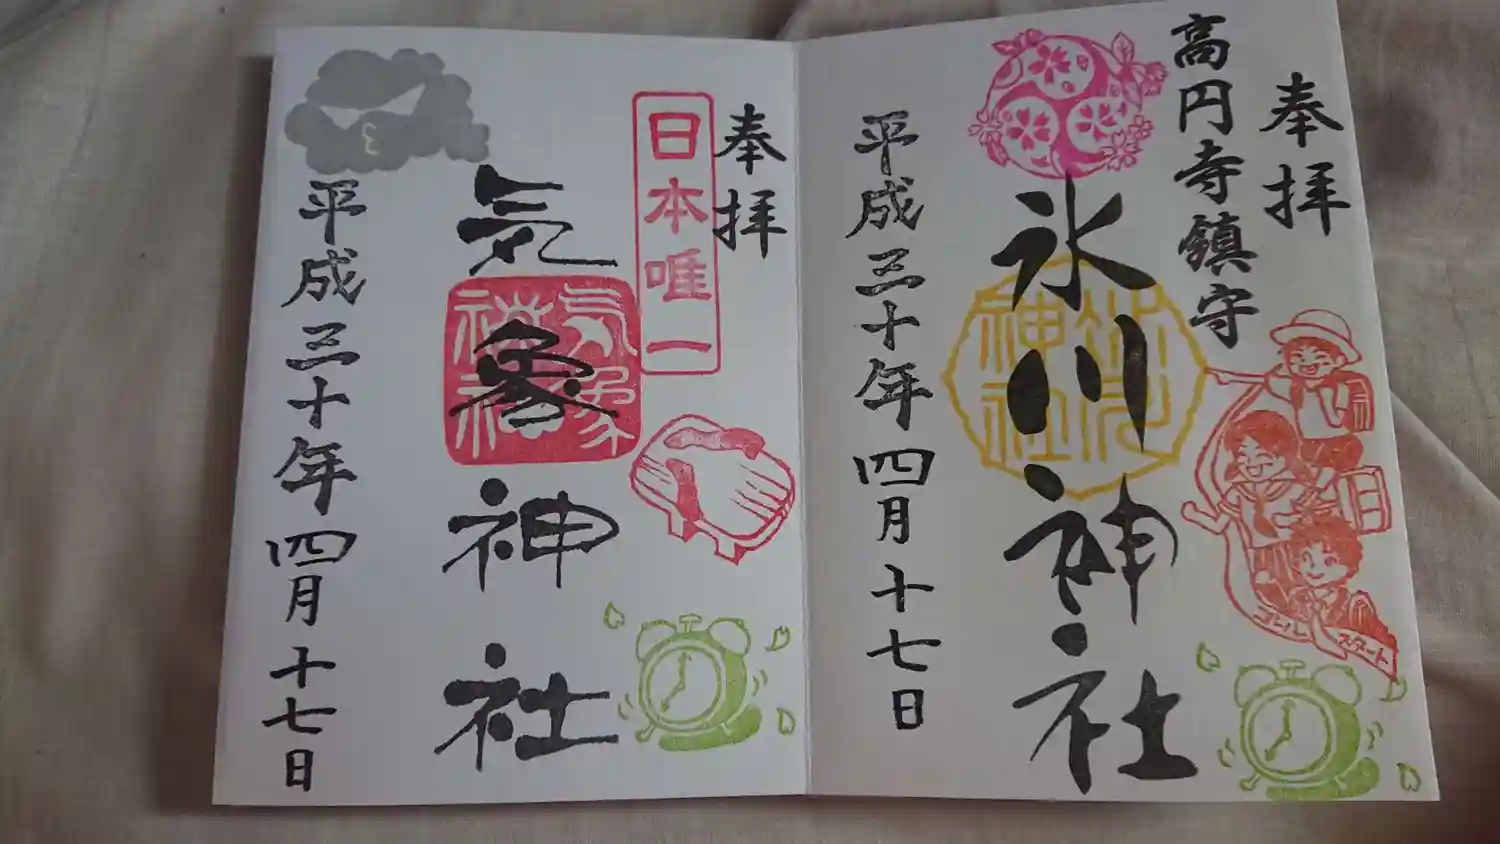 奉拝
高円寺鎮守
氷川神社
氷川神社
平成三十年四月十七日
ゴール
スタート
奉拝
日本唯一
気象神社
気象神社
平成三十年四月十七日